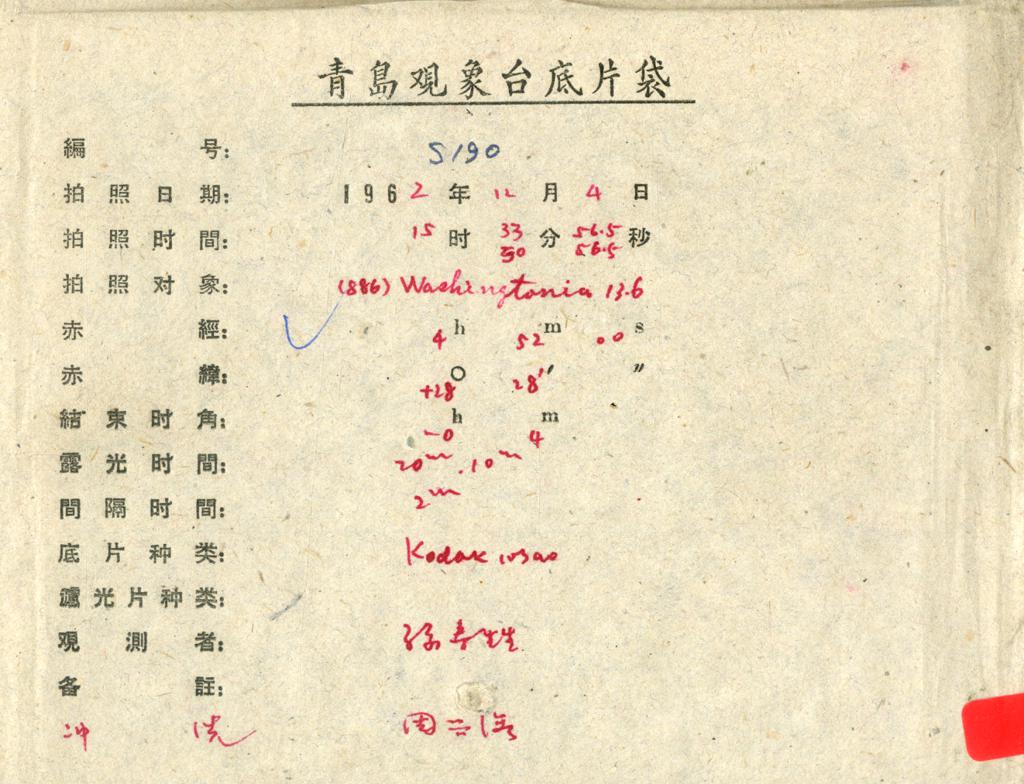 青島观象台底片袋
編号: S190
拍照日期: 1962年12月4日
拍照时間: 15时33分56.5秒
50 56.5
拍照对象: (886) Washingtonia 13.6
赤經: 4h 52m 00s
赤緯: +28° 28′ ″
結束时角: -0h 4m
露光时間: 20m. 10m
間隔时間: 2m
底片种类: Kodak 103aO
濾光片种类:
观測者: 孙寿
备註:
冲洗 周